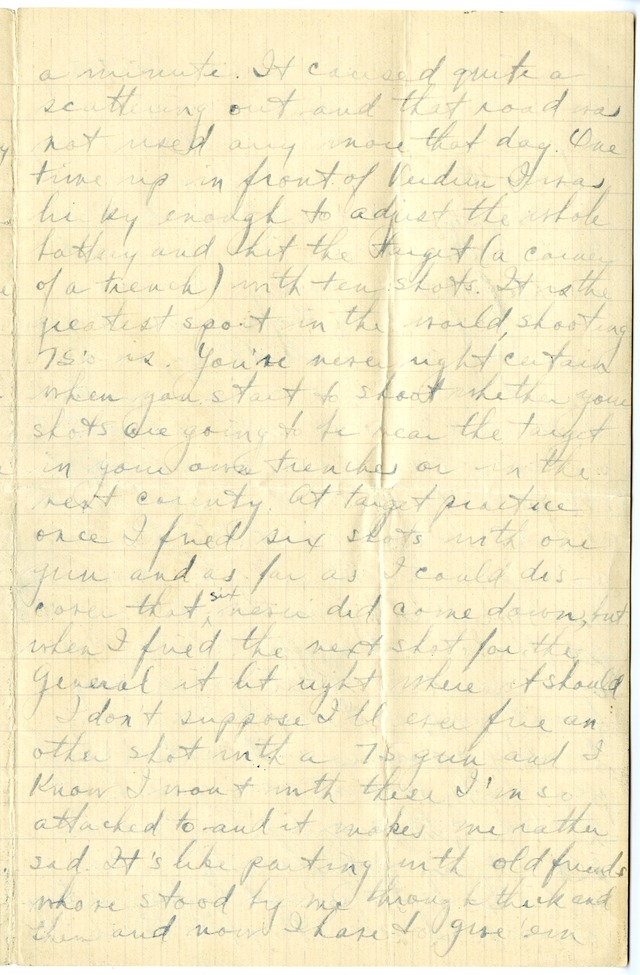 a minute. It caused quite a
scattering out and that road was
not used any more that day. One
time up in front of Verdun I was
lucky enough to adjust the whole
battery and hit the target (a corner
of a trench) with ten shots. It is the
greatest sport in the world, shooting
75's is. You're never right certain
when you start to shoot whether your
shots are going to be near the target
in your own trenches or in the
next county. At target practice
once I fired six shots with one
gun and as far as I could dis-
cover that six never did come down, but
when I fired the next shot for the
General it lit right where it should
I don't suppose I'll ever fire an
other shot with a 75 gun and I
know I wont with these I'm so
attached to and it makes me rather
sad. It's like parting with old friends
who've stood by me through thick and
thin and now I have to give 'em